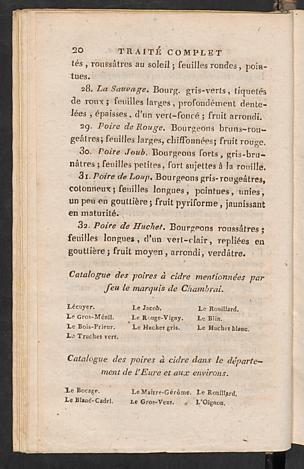 20 TRAITÉ COMPLET
tés, roussâtres au soleil ; feuilles rondes, poin-
tues.
28. La Sauvage. Bourg. gris-verts, tiquetés
de roux ; feuilles larges, profondément dente-
lées, épaisses, d'un vert-foncé ; fruit arrondi.
29. Poire de Rouge. Bourgeons bruns-rou-
geâtres ; feuilles larges, chiffonnées ; fruit rouge.
30. Poire Job. Bourgeons forts, gris-bru-
nâtres ; feuilles petites, fort sujettes à la rouille.
31. Poire de Loup. Bourgeons gris-rougeâtres,
cotonneux ; feuilles longues, pointues, unies,
un peu en gouttière ; fruit pyriforme, jaunissant
en maturité.
32. Poire de Huchet. Bourgeons roussâtres ;
feuilles longues, d'un vert-clair, repliées en
gouttière ; fruit moyen, arrondi, verdâtre.
Catalogue des poires à cidre mentionnées par
feu le marquis de Chambrai.
Lécuyer. Le Jacob. Le Rouillard.
Le Gros-Ménil. Le Rouge-Vigny. Le Blin.
Le Bois-Prieur. Le Huchet gris. Le Huchet blanc.
Le Truches vert.
Catalogue des poires à cidre dans le départe-
ment de l'Eure et aux environs.
Le Bocage. Le Maître-Gérôme. Le Rouillard.
Le Blanc-Cadri. Le Gros-Vert. L'Oignon.